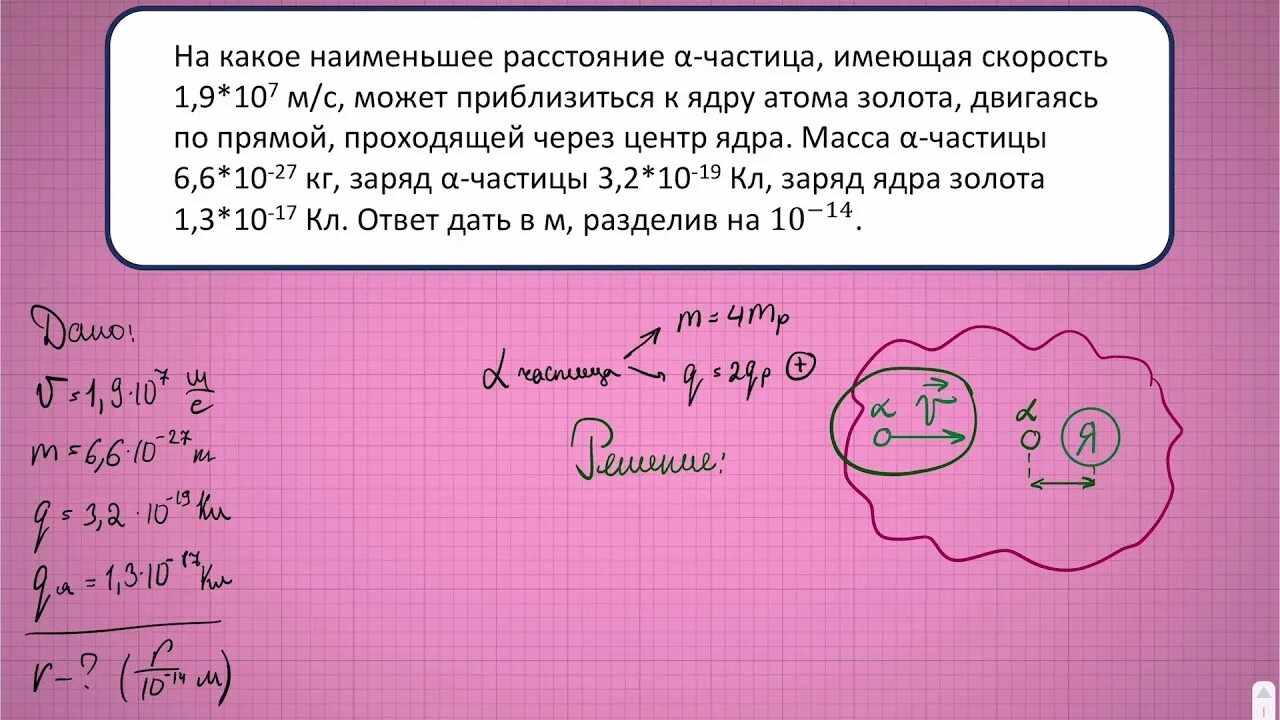 На какое наименьшее расстояние α-частица, имеющая скорость
1,9*10⁷ м/с, может приблизиться к ядру атома золота, двигаясь
по прямой, проходящей через центр ядра. Масса α-частицы
6,6*10⁻²⁷ кг, заряд α-частицы 3,2*10⁻¹⁹ Кл, заряд ядра золота
1,3*10⁻¹⁷ Кл. Ответ дать в м, разделив на 10⁻¹⁴.
Дано:
v = 1,9·10⁷ м/с
m = 6,6·10⁻²⁷ кг
q = 3,2·10⁻¹⁹ Кл
qя = 1,3·10⁻¹⁷ Кл
r - ? (r/10⁻¹⁴ м)
α частица
m = 4mp
q = 2qp ⊕
Решение:
α v
α Я